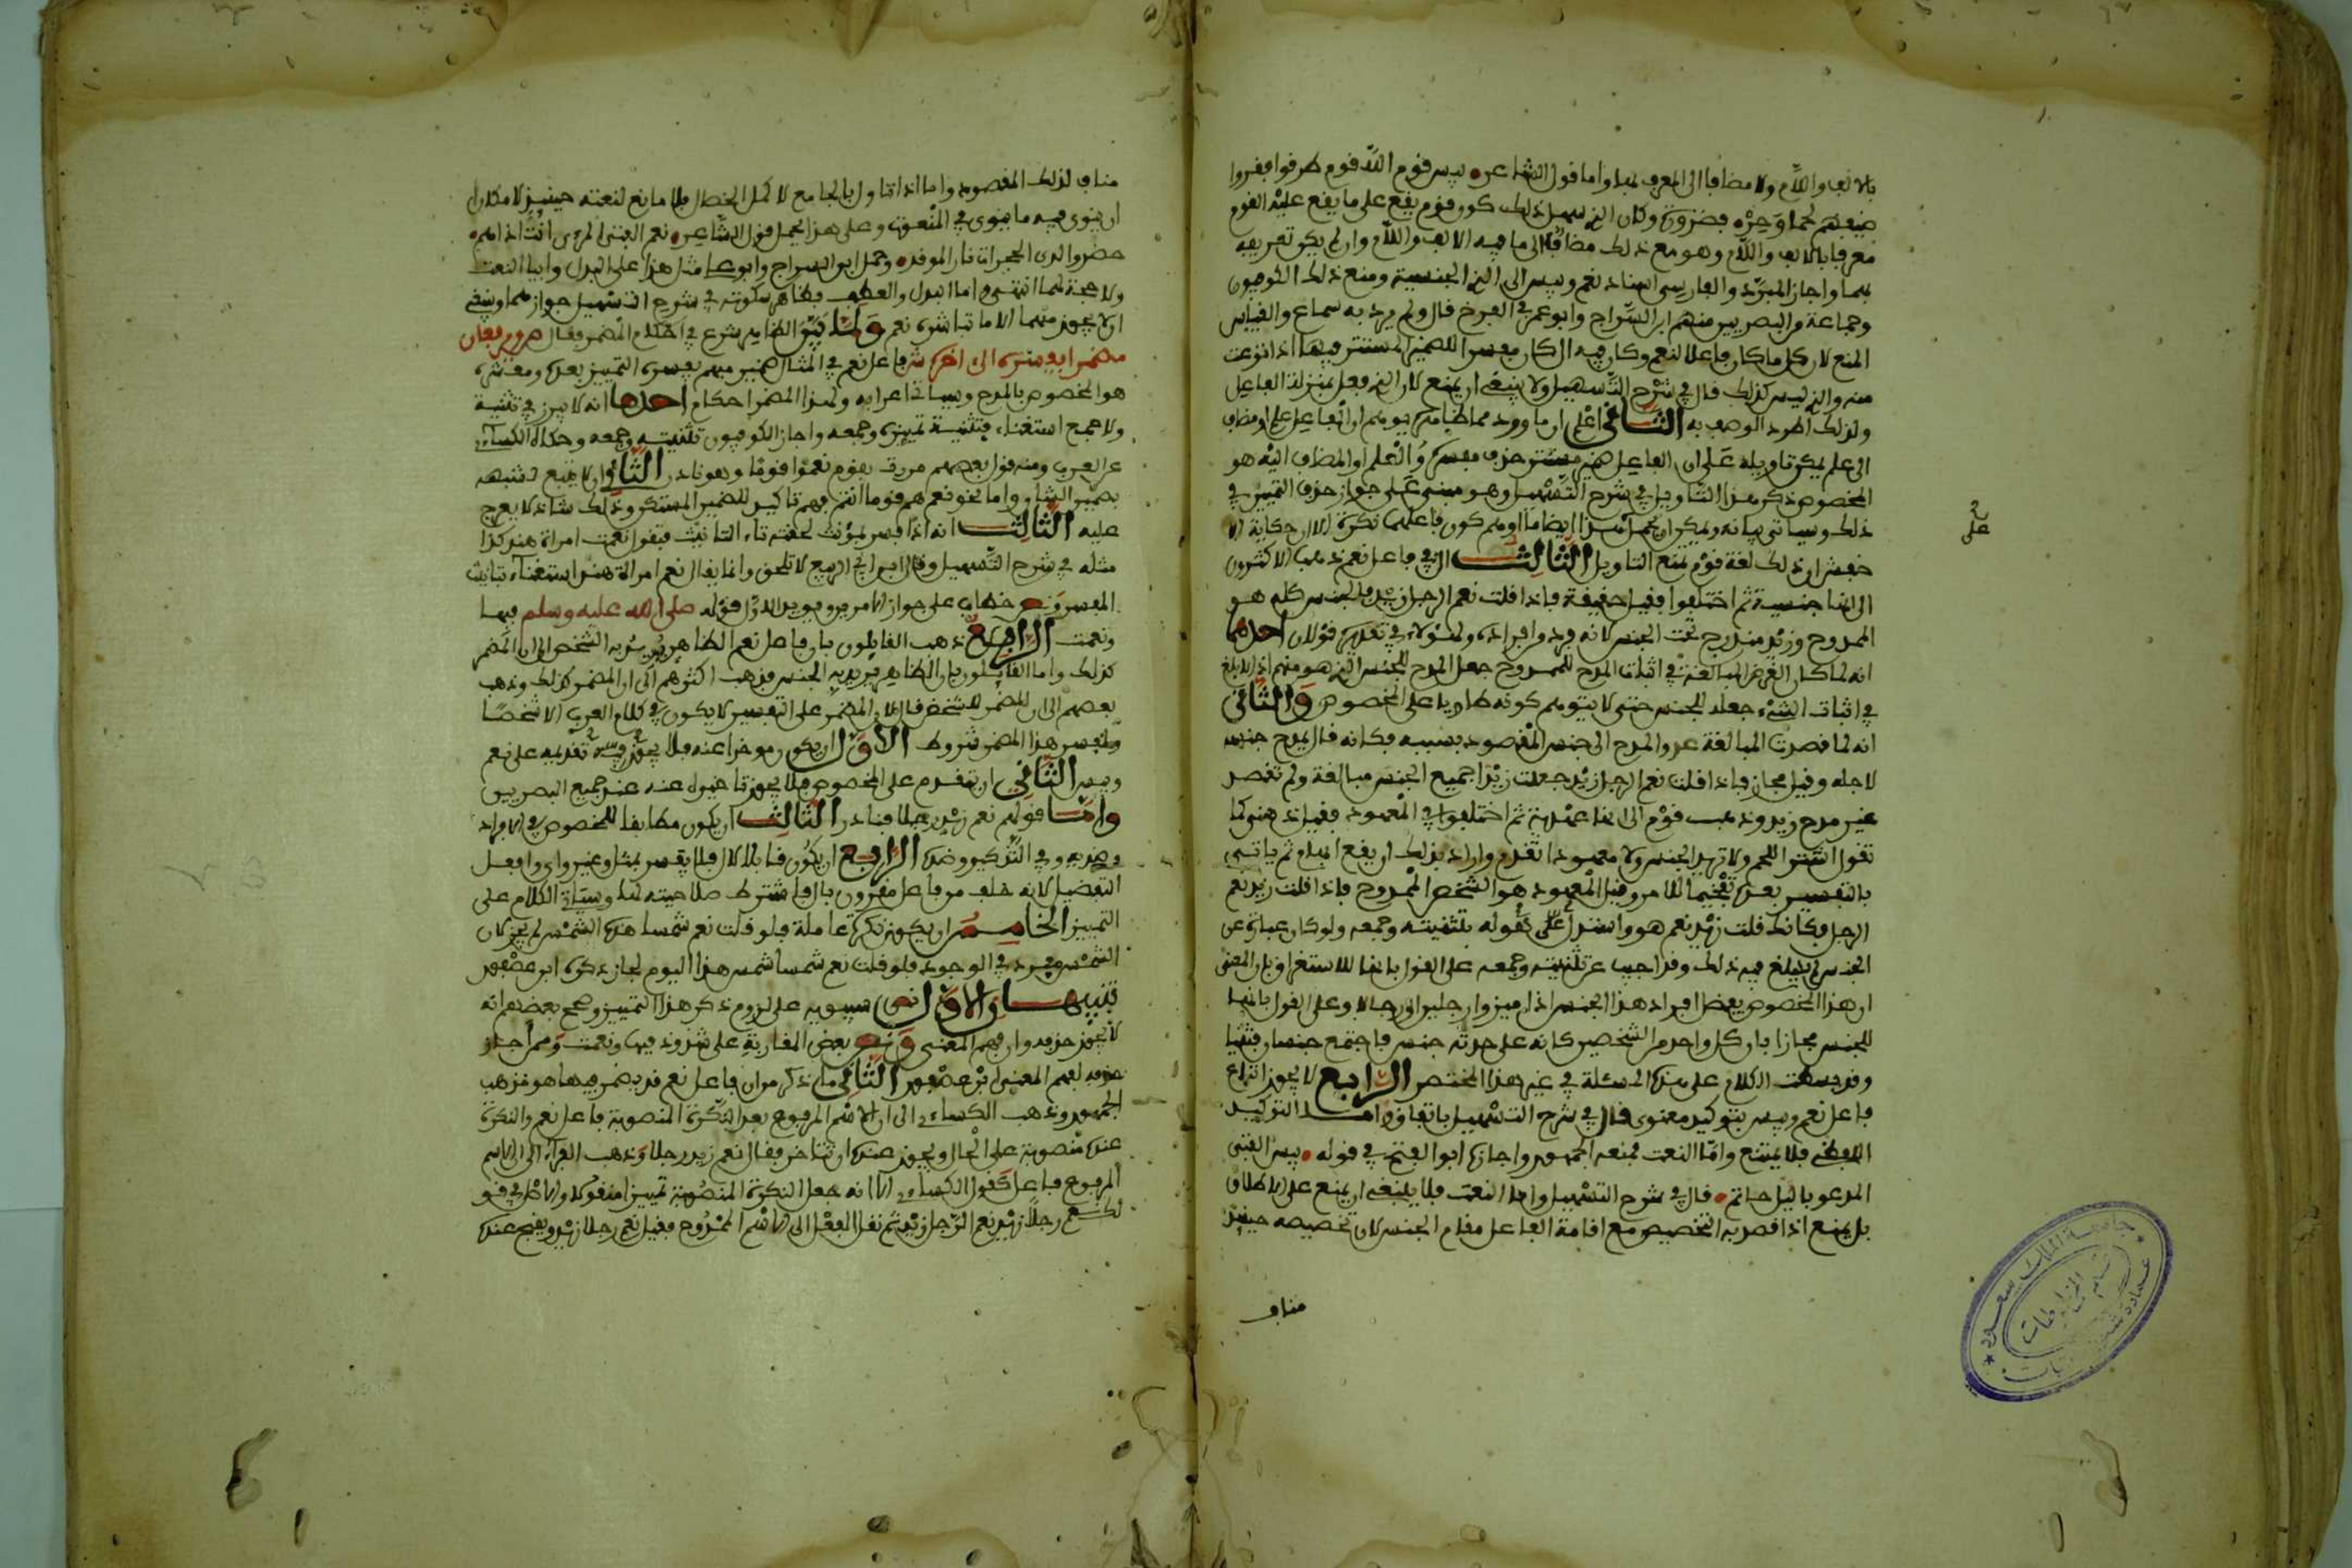 بالالف واللام ولا مضافا الى المعرف بهما واما قول الشاعر بيس قوم الله قوم طرقوا فقروا
ضيفهم لحما وحره فضرورة وكان الذي سهل ذلك كون قوم يقع على ما يقع عليه القوم
معرفا بالالف واللام وهو مع ذلك مضاف الى ما فيه الالف واللام وان لم يكن تعريفه
بهما واجاز المبرد والفارسي اسناد نعم وبيس الى الذي الجنسية ومنع ذلك الكوفيون
وجماعة من البصريين منهم ابن السراج وابو عمر في الفرخ قال ولم يرد به سماع والقياس
المنع لان كل ما كان فاعلا لنعم وكان فيه ال كان مفسرا للضمير المستتر فيها اذا نزعت
منه والذي ليس كذلك قال في شرح التسهيل ولا ينبغي ان يمنع لان الذي جعل بمنزلة الفاعل
ولذلك اطرد الوصف به الثاني اعلم ان ما ورد مما ظاهره يوهم ان الفاعل علم او مضاف
الى علم يمكن تاويله على ان الفاعل ضمير مستتر حذف مفسره والعلم او المضاف اليه هو
المخصوص ذكر هذا التاويل في شرح التسهيل وهو مبني على جواز حذف التمييز في
ذلك وسياتي بيانه ويمكن ان يحمل هذا ايضا ما اوهم كون فاعلهما نكرة الا ان حكاية الا
خفش ان ذلك لغة قوم يمنع التاويل الثالث ال في فاعل نعم ذهب الاكثرون
الى انها جنسية ثم اختلفوا فقيل حقيقة فاذا قلت نعم الرجل زيد فالجنس كله هو
الممدوح وزيد مندرج تحت الجنس لانه فرد من افراده ولهؤلاء في تقديره قولان احدهما
انه لما كان الغرض المبالغة في اثبات المدح للممدوح جعل المدح للجنس الذي هو منهم اذ الابلغ
في اثبات الشيء جعله للجنس حتى لا يتوهم كونه طاريا على المخصوص والثاني
انه لما قصدت المبالغة عدوا المدح الى جنس المقصود بسببه فكانه قال يمدح جنسه
لاجله وقيل مجاز فاذا قلت نعم الرجل زيد جعلت زيدا جميع الجنس مبالغة ولم تقصد
غير مدح زيد وذهب قوم الى انها عهدية ثم اختلفوا في المعهود فقيل ذهني كما
تقول اشتر اللحم ولا تريد الجنس ولا معهودا تقدم واراد بذلك ان يقع ابهام ثم ياتي
بالتفسير بعده تفخيما للامر وقيل المعهود هو الشخص الممدوح فاذا قلت زيد نعم
الرجل فكانك قلت زيد نعم هو واستدل على قوله بتثنيته وجمعه ولو كان عبارة عن
الجنس لم يبلغ فيه ذلك وقد اجيب عن تثنيته وجمعه على القول بانها للاستغراق بان المعنى
ان هذا المخصوص يفضل افراد هذا الجنس اذا ميزوا رجلين او رجالا وعلى القول بانها
للجنس مجازا بان كل واحد من الشخصين كانه على حدته جنس فاجتمع جنسان فثنيا
وقد بسطت الكلام على هذه المسئلة في غير هذا المختصر الرابع لا يجوز اتباع
فاعل نعم وبيس بتوكيد معنوي قال في شرح التسهيل باتفاق واما التوكيد
اللفظي فلا يمتنع واما النعت فمنعه الجمهور واجازه ابو الفتح في قوله بيس الفتى
المدعو بالليل حاتم قال في شرح التسهيل واما النعت فلا ينبغي ان يمنع على الاطلاق
بل يمنع اذا قصد به التخصيص مع اقامة الفاعل مقام الجنس لان تخصيصه حينئذ
مناف
على
مناف لذلك المقصود واما اذا تاول بالجامع لاكمل الخصال فلا مانع لنعته حينئذ لامكان
ان ينوى فيه ما ينوى في المنعوت وعلى هذا يحمل قول الشاعر نعم الفتى المرى انت اذا هم
حضروا لدى الحجرات نار الموقد وحمل ابن السراج وابو علي مثل هذا على البدل وابيا النعت
ولا حجة لهما انتهى واما البدل والعطف فظاهر سكوته في شرح التسهيل جوازهما وينبغي
ان لا يجوز منهما الا ما تباشره نعم ولما بين الظاهر شرع في احكام المضمر فقال ويرفعان
مضمرا يفسره الى اخره ففاعل نعم في المثال ضمير مبهم يفسره التمييز بعده ومعشره
هو المخصوص بالمدح وسياتي اعرابه ولهذا المضمر احكام احدها انه لا يبرز في تثنية
ولا جمع استغناء بتثنية تمييزه وجمعه واجاز الكوفيون تثنيته وجمعه وحكاه الكساءي
عن العرب ومنه قول بعضهم مررت بقوم نعموا قوما وهو نادر الثاني انه لا يتبع لشبهه
بضمير الشان واما نحو نعم هم قوما انتم فهم تاكيد للضمير المستكن وذلك شاذ لا يعرج
عليه الثالث انه اذا فسر بمؤنث لحقته تاء التانيث فيقول نعمت امراة هند كذا
مثله في شرح التسهيل وقال ابن ابي الربيع لا تلحق وانما يقال نعم امراة هند استغناء بتانيث
المفسر ونص خطاب على جواز الامرين ويويد الاول قوله صلى الله عليه وسلم فبها
ونعمت الرابع ذهب القايلون بان فاعل نعم الظاهر يريد به الشخص الى ان المضمر
كذلك واما القايلون بان الظاهر يريد به الجنس فذهب اكثرهم الى ان المضمر كذلك وذهب
بعضهم الى ان المضمر للشخص قال لان المضمر على التفسير لا يكون في كلام العرب الا شخصا
ولمفسر هذا المضمر شروط الاول ان يكون موخرا عنه فلا يجوز تقديمه على نعم
وبيس الثاني ان يتقدم على المخصوص فلا يجوز تاخيره عنه عند جميع البصريين
واما قولهم نعم زيد رجلا فنادر الثالث ان يكون مطابقا للمخصوص في الافراد
وضديه وفي التذكير وضده الرابع ان يكون قابلا لال فلا يفسر بمثل وغير واي وافعل
التفضيل لانه خلف من فاعل مقرون بال فاشترط صلاحيته لها وسياتي الكلام على
التمييز الخامس ان يكون نكرة عاملة فلو قلت نعم شمسا هذه الشمس لم يجز لان
الشمس مفرد في الوجود فلو قلت نعم شمسا شمس هذا اليوم لجاز ذكره ابن عصفور
تنبيهان الاول نص سيبويه على لزوم ذكر هذا التمييز وصحح بعضهم انه
لا يجوز حذفه وان فهم المعنى ونص بعض المغاربة على شذوذ فبها ونعمت وممن اجاز
حذفه لفهم المعنى ابن عصفور الثاني ما ذكر من ان فاعل نعم قد يضمر فيها هو مذهب
الجمهور وذهب الكساءي الى ان الاسم المرفوع بعد النكرة المنصوبة فاعل نعم والنكرة
عنده منصوبة على الحال ويجوز عنده ان تتاخر فيقال نعم زيد رجلا وذهب الفراء الى ان الاسم
المرفوع فاعل كقول الكساءي الا انه جعل النكرة المنصوبة تمييزا منقولا والاصل في قو
لك نعم رجلا زيد نعم الرجل زيد ثم نقل الفعل الى الاسم الممدوح فقيل نعم رجلا زيد ويقبح عنده
جامعة الملك سعود
قسم المخطوطات